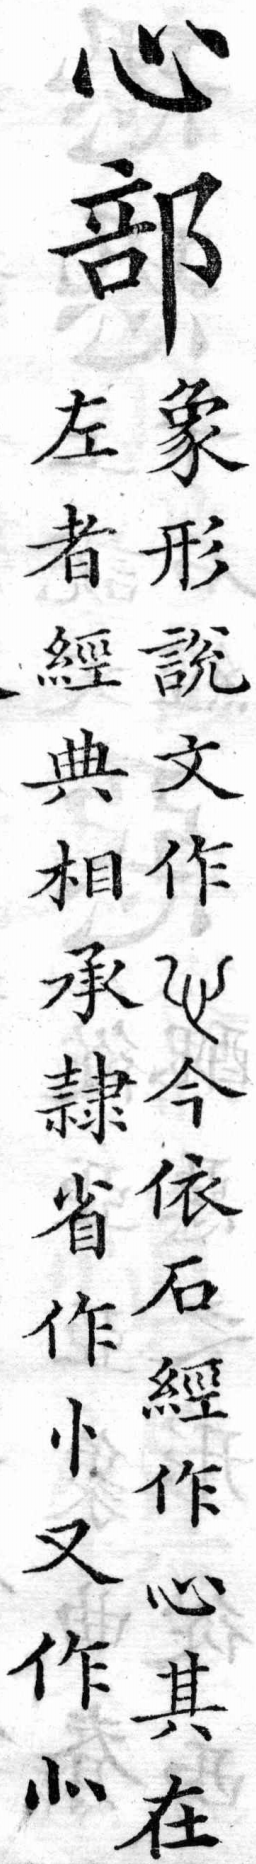 心部
象形説文作𢖩今依石經作心其在
左者經典相承隷省作忄又作㣺